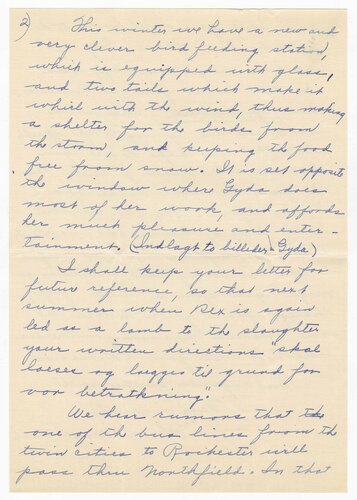 2) This winter we have a new and
very clever bird feeding station,
which is equipped with glass,
and two tails which make it
whirl with the wind, thus making
a shelter for the birds from
the storm, and keeping the food
free from snow. It is set opposite
the window wher Gyda does
most of her work, and affords
her much pleasure and enter-
tainment. (Indlagt to billeder. Gyda)
I shall keep your letter for
future reference, so that next
summer when Rex is again
led as a lamb to the slaughter
your written directions "skal
laeses og laegges til grund for
vor betraktning."
We hear rumors that
one of th bus lines from th
twin cities to Rochester will
pass thru Northfield. In that